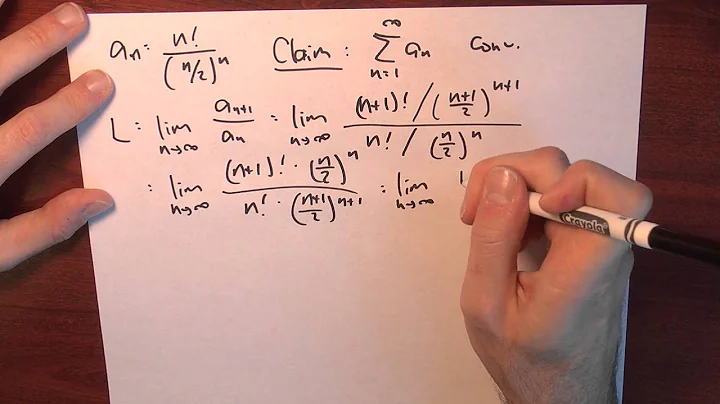 aₙ = n! / (n/2)ⁿ Claim: ∑_{n=1}^{∞} aₙ conv.
L = lim_{n→∞} aₙ₊₁ / aₙ = lim_{n→∞} ((n+1)! / ((n+1)/2)^{n+1}) / (n! / (n/2)ⁿ)
= lim_{n→∞} ((n+1)! · (n/2)ⁿ) / (n! · ((n+1)/2)^{n+1}) = lim_{n→∞}
Crayola